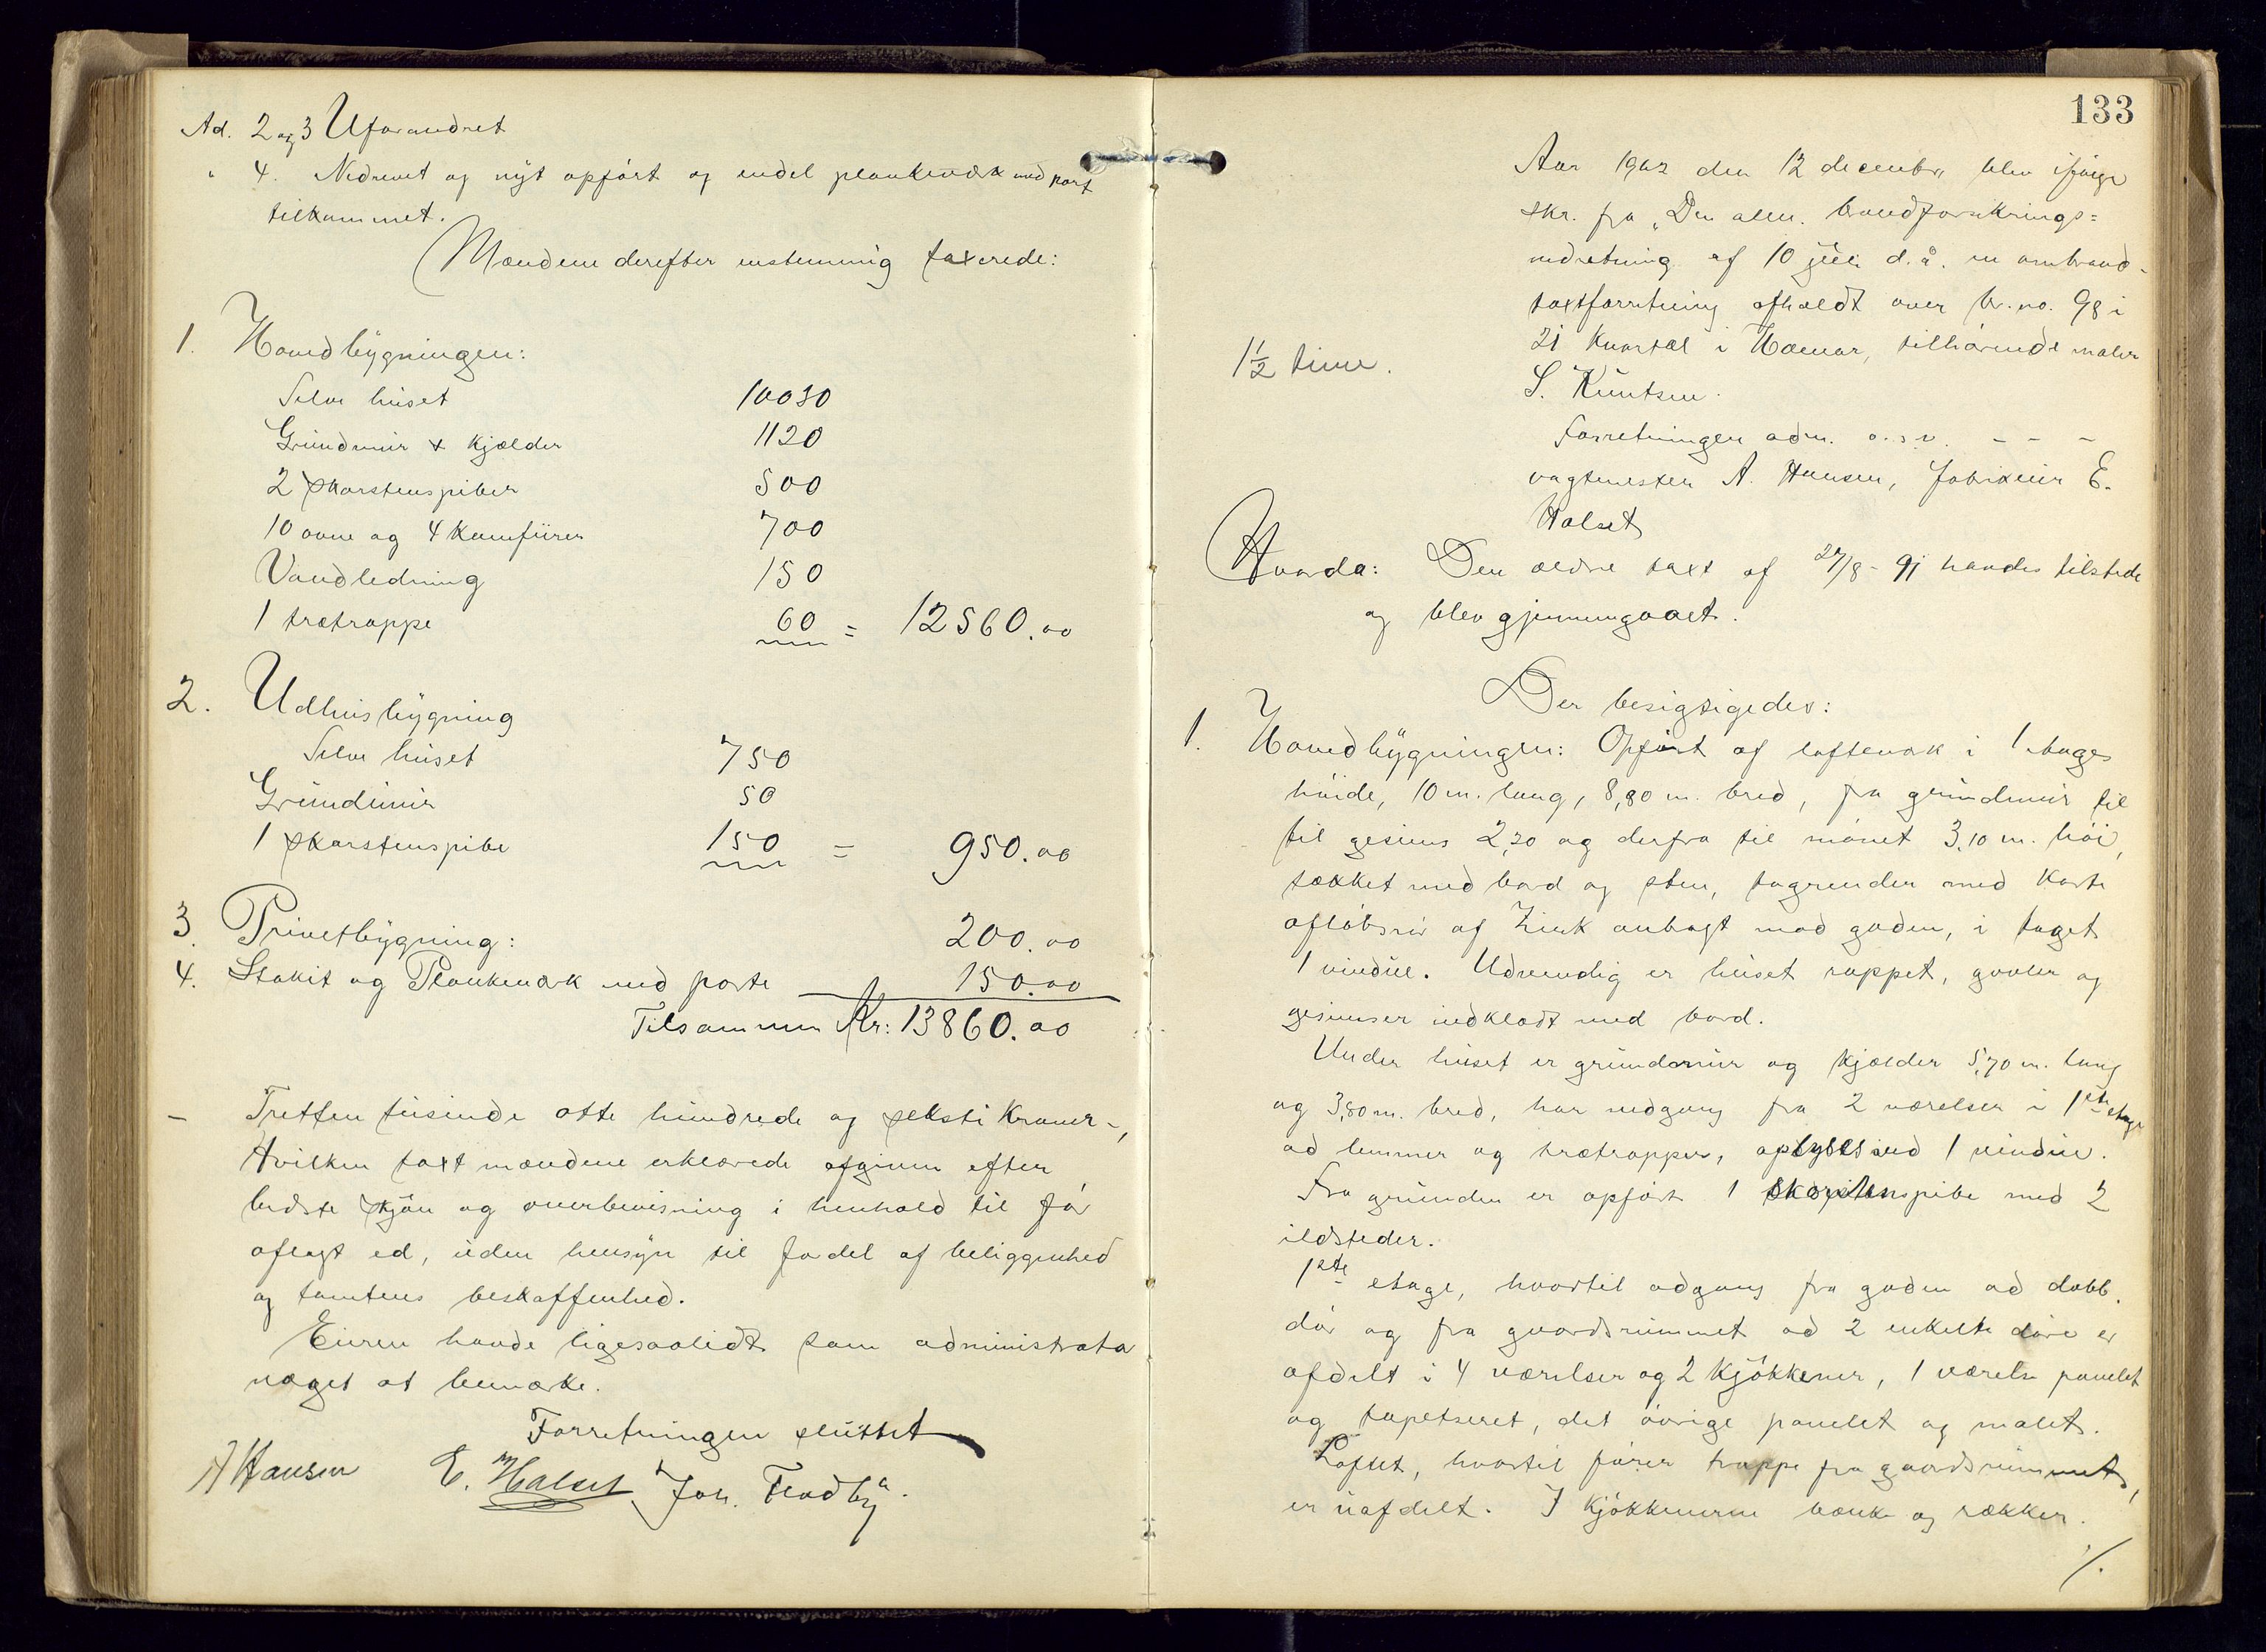 Ad. 2 og 3 Uforandret
" 4. Nedrevet og nyt opført og endel plankeværk med port
tilkommet.
Mændene derefter enstemmig taxerede:
1. Hovedbygningen:
Selve huset 10030
Grundmur & kjælder 1120
2 skorstenspiber 500
10 ovne og 4 komfürer 700
Vandledning 150
1 trætrappe 60 = 12560.00
2. Udhusbygning
Selve huset 750
Grundmur 50
1 skorstenspibe 150 = 950.00
3. Privetbygning: 200.00
4. Stakit og Plankeværk med porte 150.00
Tilsammen Kr: 13860.00
– Tretten tusinde otte hundrede og seksti Kroner –,
Hvilken taxt mændene erklærede afgiven efter
bedste skjøn og overbevisning i henhold til før
aflagt ed, uden hensyn til fordel af beliggenhed
og tomtens beskaffenhed.
Eieren havde ligesaalidt som administrator
noget at bemærke.
Forretningen sluttet
A Hansen E. Halset Joh. Flodby.
133
Aar 1902 den 12 decembr blev ifølge
skr. fra "Den alm. brandforsikrings-
indretning af 10 juli d.å. en ombrand-
taxtforretning afholdt over br. no. 98 i
21 kvartal i Hamar, tilhørende maler
1 1/2 time.
S. Knutsen.
Forretningen adm. o.s.v. – – –
vagtmester A. Hansen, fabrikeur E.
Halset
Hvorda: Den ældre taxt af 27/8 - 91 havdes tilstede
og blev gjennemgaaet.
Der besigtigedes:
1. Hovedbygningen: Opført af lafteverk i 1 etages
høide, 10 m. lang, 8,80 m. bred, fra grundmur til
til gesims 2,20 og derfra til mønet 3,10 m. høi,
tækket med bord og sten, tagrender med korte
afløbsrør af Zink anbragt mod gaden, i taget
1 vindue. Udvendig er huset rappet, gavler og
gesimser indklædt med bord.
Under huset er grundmur og kjælder 5,70 m. lang
og 3,80 m. bred, har nedgang fra 2 værelser i 1ste etage
ad lemmer og trætrapper, oplyst ved 1 vindue.
Fra grunden er opført 1 skorstenspibe med 2
ildsteder.
1ste etage, hvortil adgang fra gaden ad dobb.
dør og fra gaardsrummet ad 2 enkelte døre er
afdelt i 4 værelser og 2 kjøkkener, 1 værelse panelet
og tapetseret, det øvrige panelet og malet.
Loftet, hvortil fører trappe fra gaardsrummet,
er uafdelt. I kjøkkenerne bænke og rækker.
./.